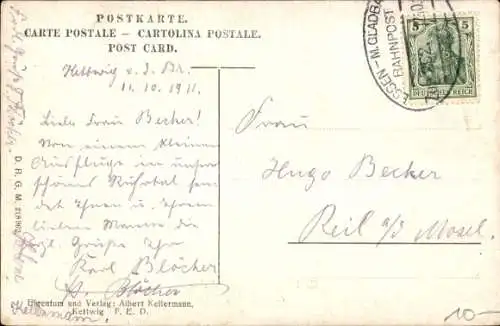 POSTKARTE.
CARTE POSTALE – CARTOLINA POSTALE.
POST CARD.
Kettwig v. d. Br.
11.10.1911.
Liebe Frau Becher!
Von einem kleinen
Ausfluge in unser
schönes Ruhrtal sen-
det Ihnen u. Ihrem
lieben Manne die
hzgl. Grüße Ihr
Karl Blöcher
Blöcher
Eigentum und Verlag: Albert Kellermann,
Kettwig F. E. D.
Kellermann,
D. R. G. M.
ESSEN-M.GLADB
BAHNPOST
5 5
DEUTSCHES REICH
Frau
Hugo Becker
Reil a/d Mosel.
10-